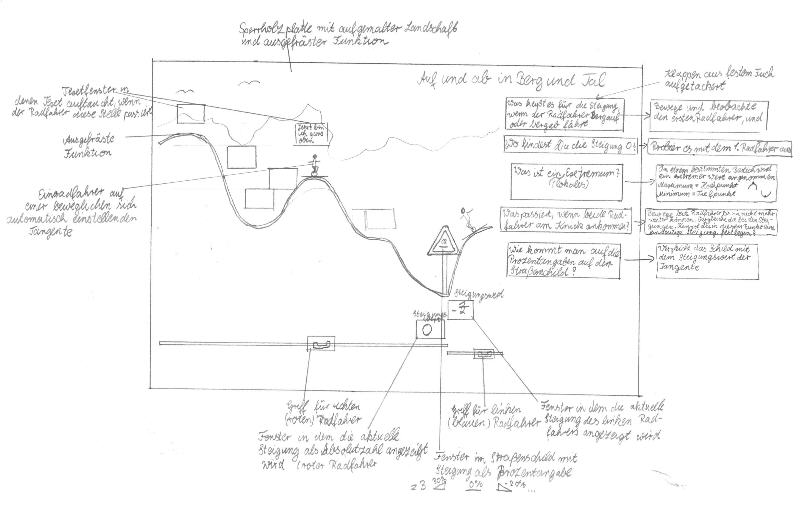 Sperrholzplatte mit aufgemalter Landschaft
und ausgefräster Funktion
Auf und ab in Berg und Tal
Klappen aus festem Tuch
aufgetackert
Textfenster in
denen Text auftaucht, wenn
der Radfahrer diese Stelle passiert
Ausgefräste
Funktion
Einradfahrer auf
einer beweglichen sich
automatisch einstellenden
Tangente
Jetzt bin
ich ganz
oben
Was heißt es für die Steigung,
wenn der Radfahrer Bergauf
oder bergab fährt
Bewege und beobachte
den ersten Radfahrer, und
Wo findest Du die Steigung 0?
Probier es mit dem 1. Radfahrer aus
Was ist ein Extremum?
(lokales)
In einem bestimmten Bereich wird
ein extremer Wert angenommen
Maximum = Hochpunkt
Minimum = Tiefpunkt
Was passiert, wenn beide Rad-
fahrer am Knick ankommen?
Bewege beide Radfahrer bis sie nicht mehr
weiter können. Vergleiche die beiden Stei-
gungen.
Wie kommt man auf die
Prozentangaben auf dem
Straßenschild?
Vergleiche das Schild mit
dem Steigungswert der
Tangente
Steigungswert
Steigungswert
0
Griff für rechten
(roten) Radfahrer
Griff für linken
(blauen) Radfahrer
Fenster in dem die aktuelle
Steigung des linken Rad-
fahrers angezeigt wird
Fenster in dem die aktuelle
Steigung als Absolutzahl angezeigt
wird (roter Radfahrer
Fenster im Straßenschild mit
Steigung als Prozentangabe
z.B. 30% 0% -20% ...